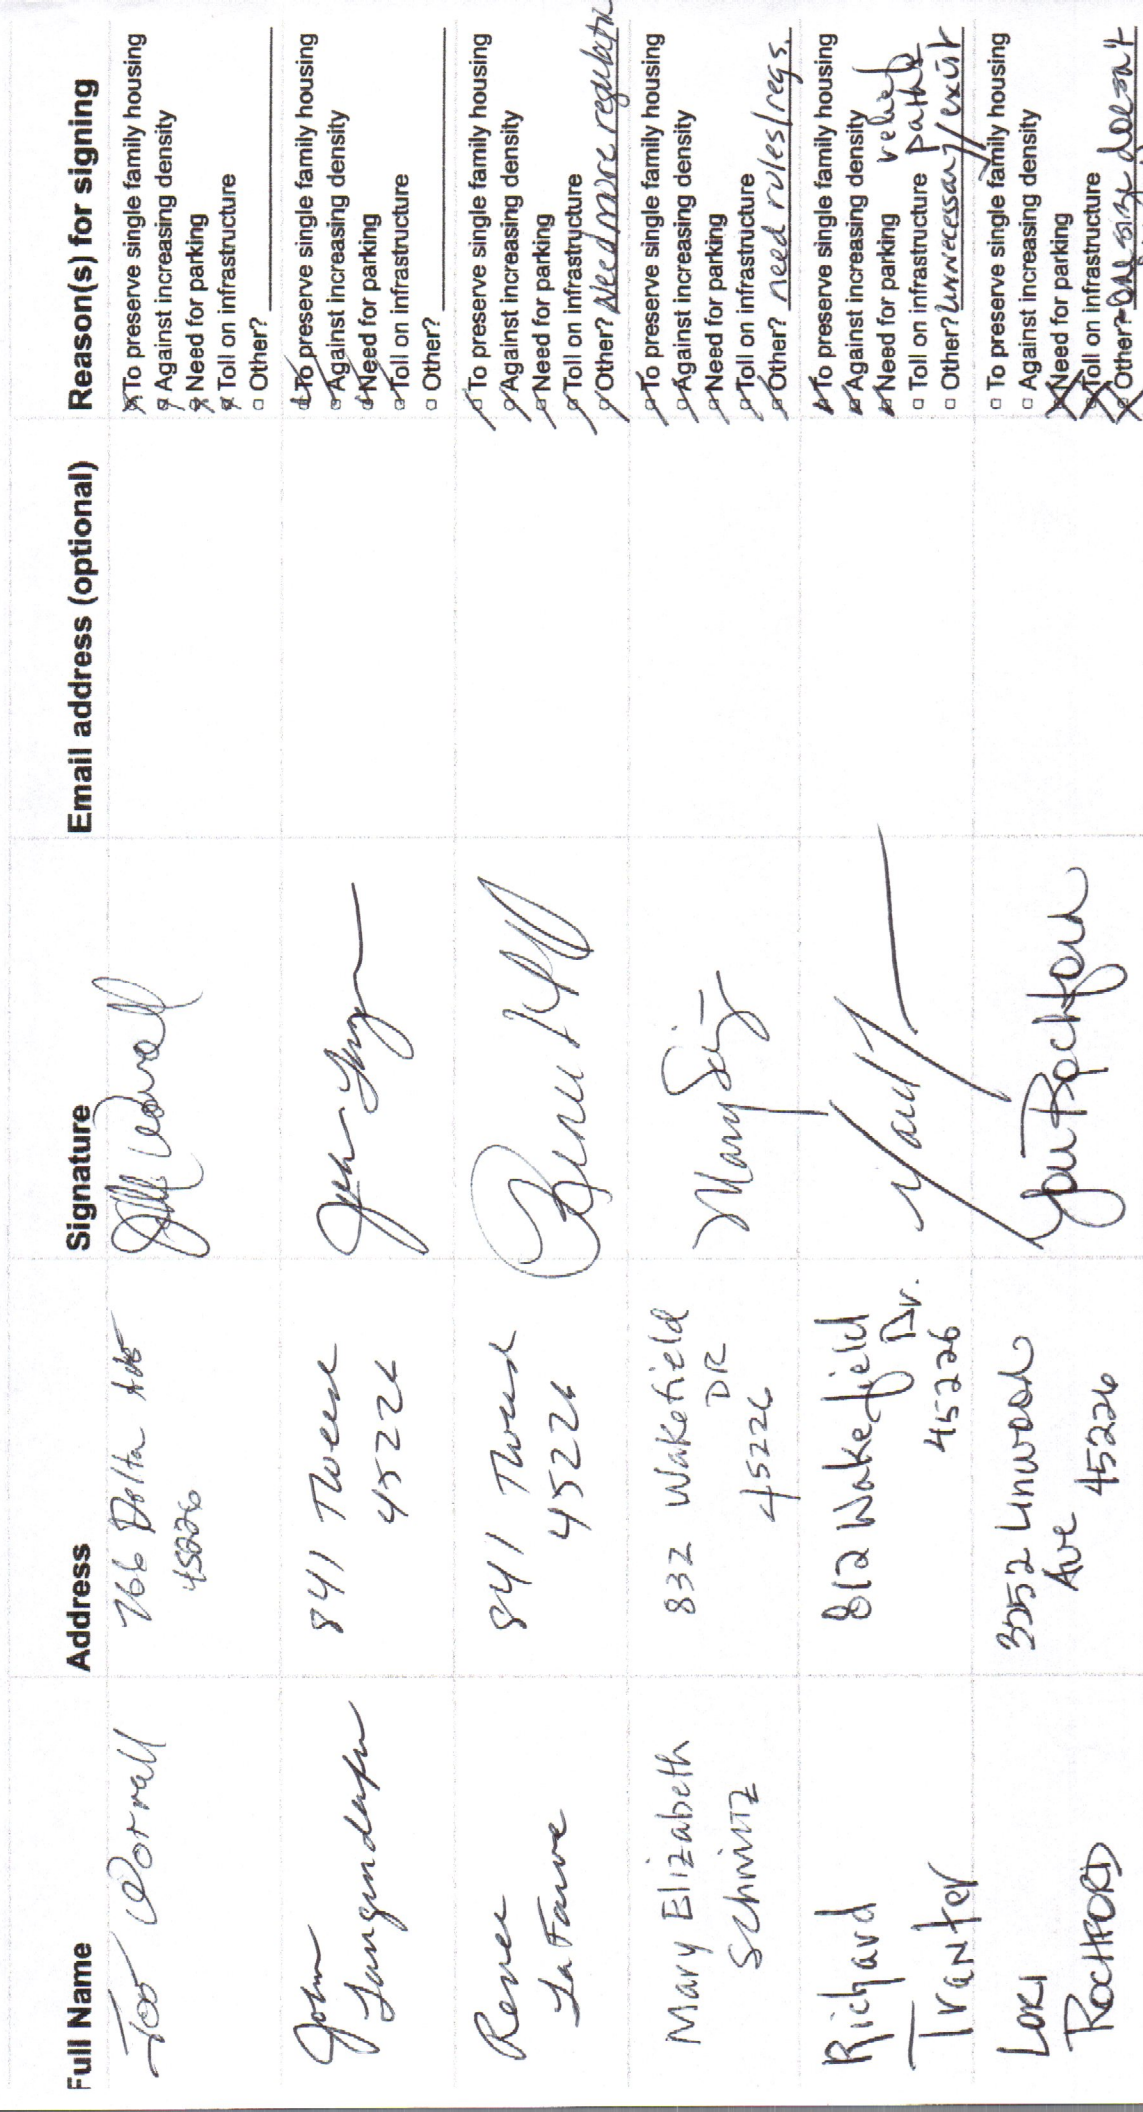 Full Name Address Signature Email address (optional) Reason(s) for signing
Worrall
766 Delta Ave
45226
To preserve single family housing
Against increasing density
Need for parking
Toll on infrastructure
Other?
John
841 Tweed
45226
To preserve single family housing
Against increasing density
Need for parking
Toll on infrastructure
Other?
Renee
LaFave
841 Tweed
45226
To preserve single family housing
Against increasing density
Need for parking
Toll on infrastructure
Other? Need more
Mary Elizabeth
Schmitz
832 Wakefield
DR
45226
Mary
To preserve single family housing
Against increasing density
Need for parking
Toll on infrastructure
Other? need rules/regs.
Richard
Tranter
812 Wakefield
Dr.
45226
To preserve single family housing
Against increasing density
Need for parking
Toll on infrastructure
Other? unnecessary
LORI
ROCHFORD
3252 Linwood
Ave
45226
Lori Rochford
To preserve single family housing
Against increasing density
Need for parking
Toll on infrastructure
Other? One size doesn't